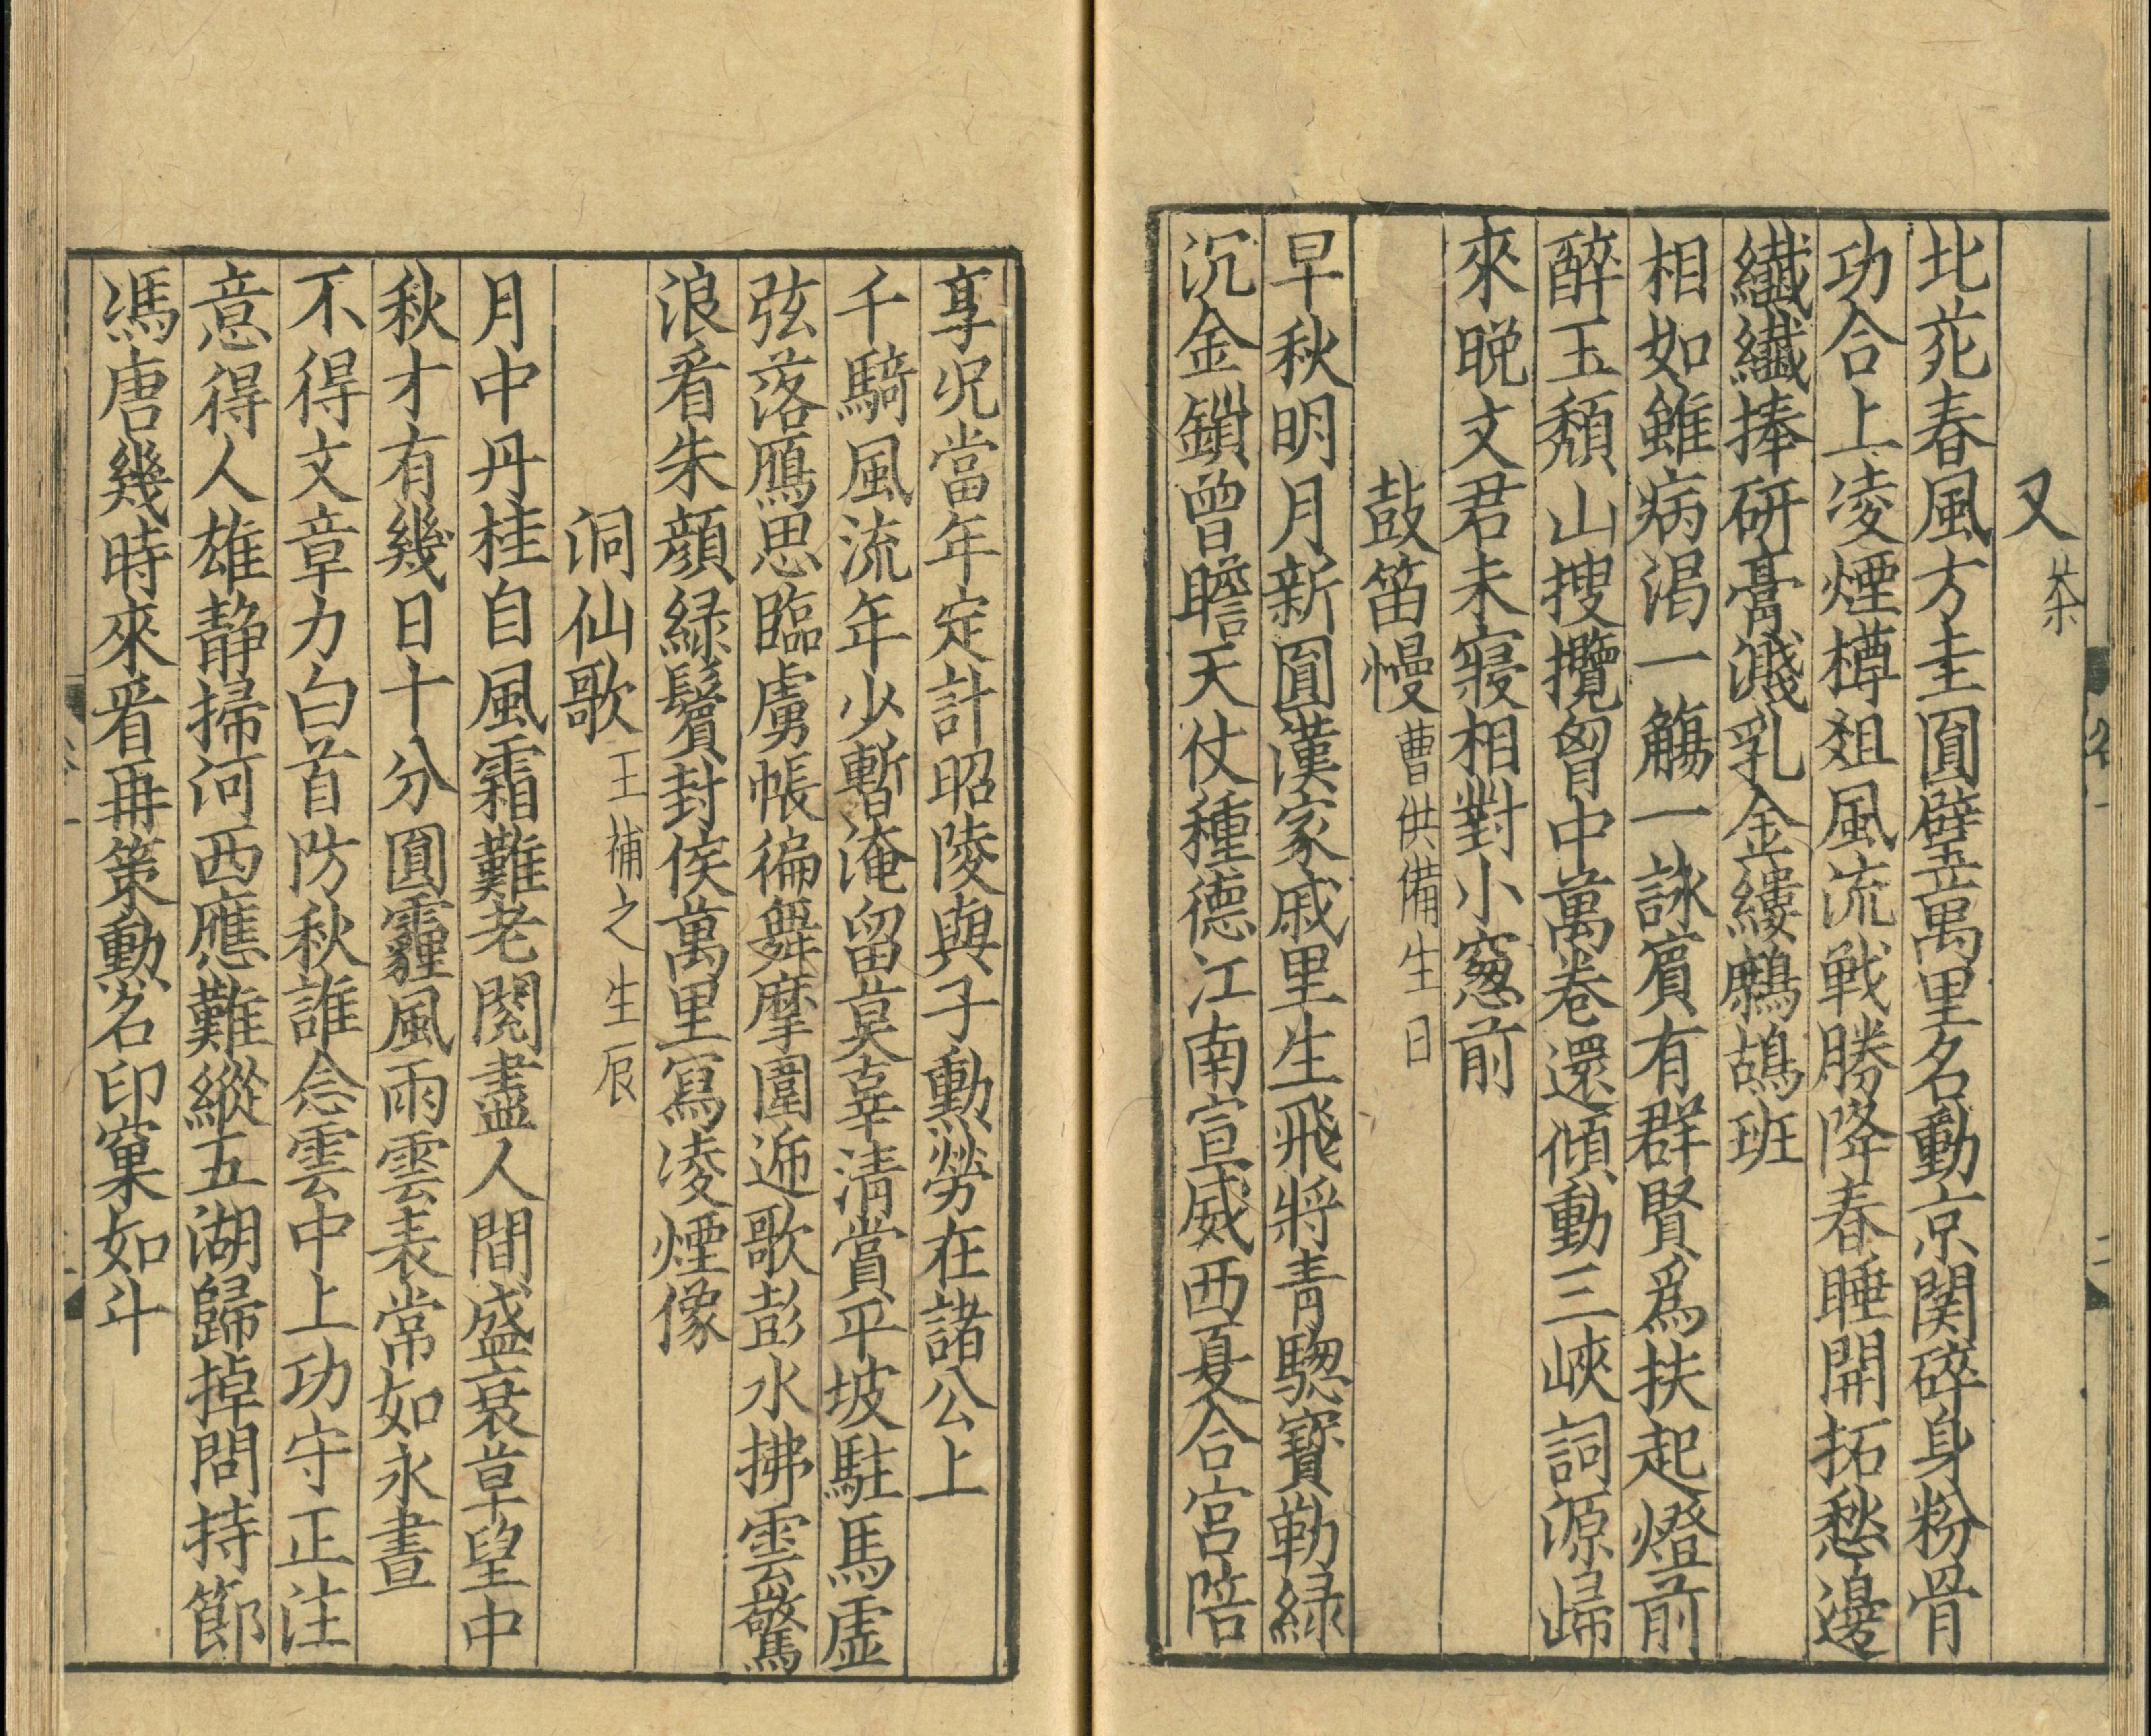 又 茶
北苑春風方圭圓璧萬里名動京関碎身粉骨
功合上凌煙樽爼風流戦勝降春睡開拓愁邊
纎纎捧研膏濺乳金縷鷓鴣班
相如雖病渇一觴一詠賔有群賢爲扶起燈前
醉玉頽山搜攬胷中萬卷還傾動三峽詞源歸
來晚文君未寢相對小窓前
鼔笛慢 曹供備生日
早秋明月新圓漢家戚里生飛將青驄寶勒緑
沉金鎖曽瞻天仗種德江南宣威西夏合宫陪
享况當年定計昭陵與子勳勞在諸公上
千騎風流年少暫淹留莫辜清賞平坡駐馬虚
弦落鴈思臨虜帳徧舞摩圍遞歌彭水拂雲驚
浪看朱顔緑鬢封侯萬里寫凌煙像
洞仙歌 王補之生辰
月中丹桂自風霜難老閲盡人間盛衰草望中
秋才有幾日十分圓霾風雨雲表常如永晝
不得文章力白首防秋誰念雲中上功守正注
意得人雄静掃河西應難縱五湖歸棹問持節
馮唐幾時來看再策勳名印窠如斗